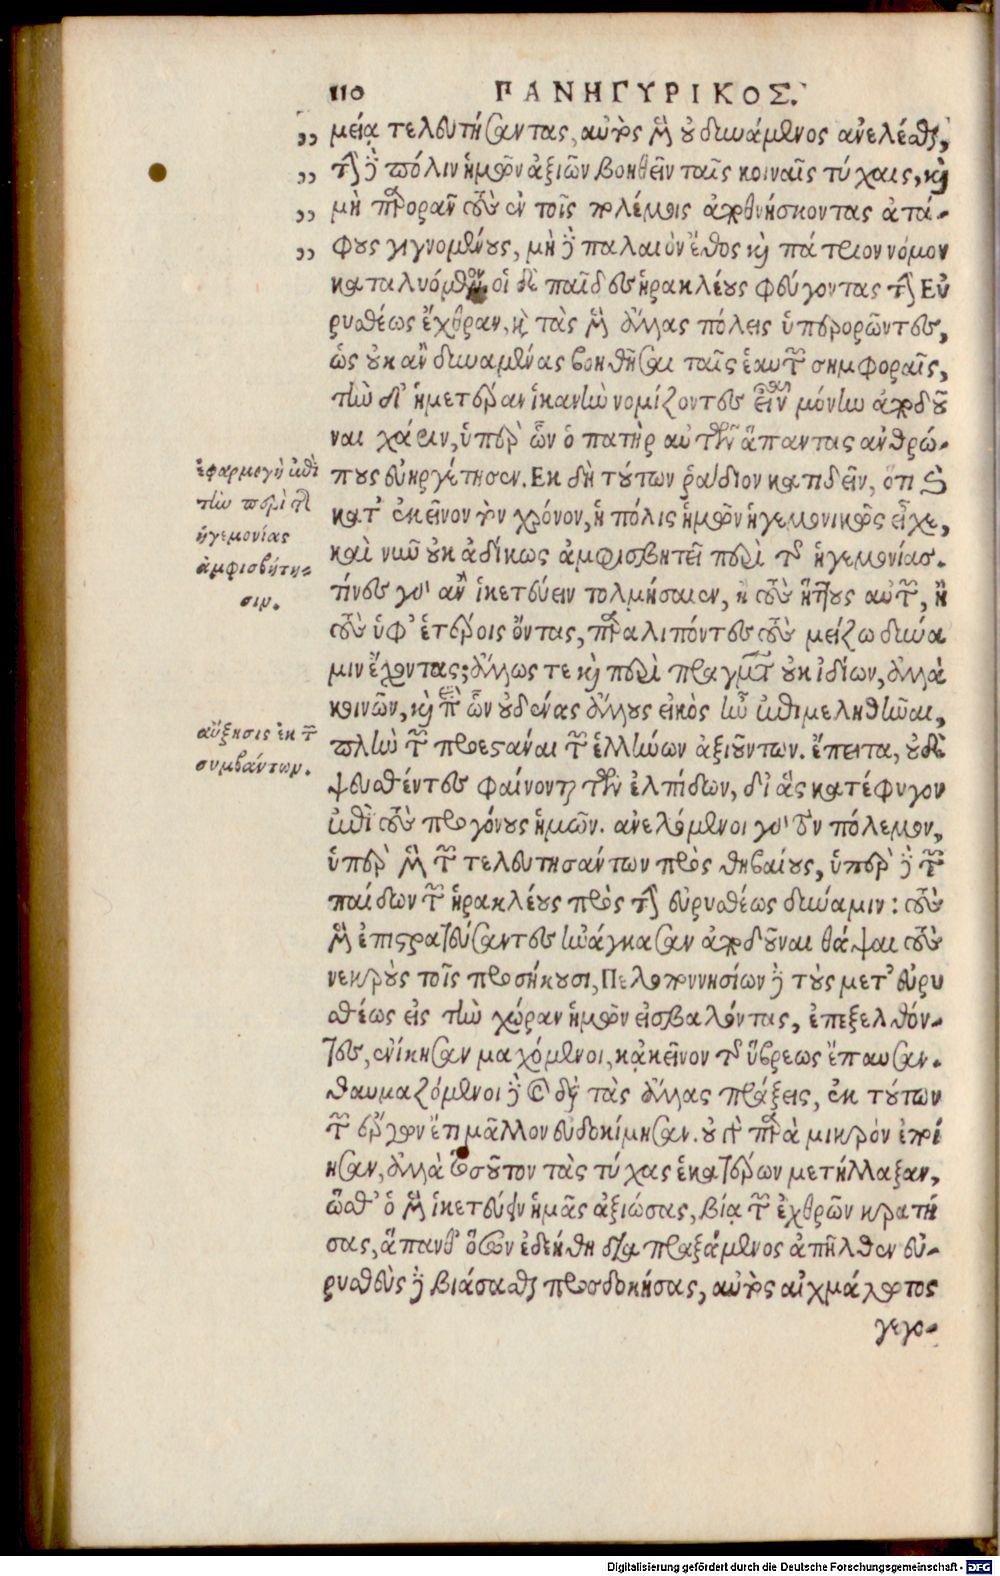 110 ΠΑΝΗΓΥΡΙΚΟΣ.
„ μείᾳ τελευτήσαντας, αὐτὸς μὲν οὐ δυνάμενος ἀνελέσθαι,
„ τὴν δὲ πόλιν ἡμῶν ἀξιῶν βοηθεῖν ταῖς κοιναῖς τύχαις, καὶ
„ μὴ παρορᾶν τοὺς ἐν τοῖς πολέμοις ἀποθνήσκοντας ἀτά-
„ φους γιγνομένους, μὴ δὲ παλαιὸν ἔθος καὶ πάτριον νόμον
καταλυόμενον. οἱ δὲ παῖδες ἡρακλέους φεύγοντες τὴν Εὐ
ρυσθέως ἔχθραν, καὶ τὰς μὲν ἄλλας πόλεις ὑπερορῶντες,
ὡς οὐκ ἂν δυναμένας βοηθῆσαι ταῖς ἑαυτῶν συμφοραῖς,
τὴν δ' ἡμετέραν ἱκανὴν νομίζοντες εἶναι μόνην ἀποδοῦ
ναι χάριν, ὑπὲρ ὧν ὁ πατὴρ αὐτῶν ἅπαντας ἀνθρώ-
πους εὐηργέτησεν. Εκ δὴ τούτων ῥᾴδιον κατιδεῖν, ὅτι καὶ
κατ' ἐκεῖνον τὸν χρόνον, ἡ πόλις ἡμῶν ἡγεμονικῶς εἶχε,
καὶ νῦν οὐκ ἀδίκως ἀμφισβητεῖ περὶ τῆς ἡγεμονίας.
τίνες γὰρ ἂν ἱκετεύειν τολμήσαιεν, ἢ τοὺς ἥττους αὐτῶν, ἢ
τοὺς ὑφ' ἑτέροις ὄντας, παραλιπόντες τοὺς μείζω δύνα
μιν ἔχοντας; ἄλλως τε καὶ περὶ πραγμάτων οὐκ ἰδίων, ἀλλὰ
κοινῶν, καὶ περὶ ὧν οὐδένας ἄλλους εἰκὸς ἦν ἐπιμεληθῆναι,
πλὴν τῶν προεστάναι τῶν ἑλλήνων ἀξιούντων. ἔπειτα, οὐδὲ
ψευσθέντες φαίνονται τῶν ἐλπίδων, δι' ἃς κατέφυγον
ἐπὶ τοὺς προγόνους ἡμῶν. ἀνελόμενοι γὰρ τὸν πόλεμον,
ὑπὲρ μὲν τῶν τελευτησάντων πρὸς θηβαίους, ὑπὲρ δὲ τῶν
παίδων τῶν ἡρακλέους πρὸς τὴν εὐρυσθέως δύναμιν: τοὺς
μὲν ἐπιστρατεύσαντες ἠνάγκασαν ἀποδοῦναι θάψαι τοὺς
νεκροὺς τοῖς προσήκουσι, Πελοποννησίων δὲ τοὺς μετ' εὐρυ
σθέως εἰς τὴν χώραν ἡμῶν εἰσβαλόντας, ἐπεξελθόν-
τες, ἐνίκησαν μαχόμενοι, κἀκεῖνον τῆς ὕβρεως ἔπαυσαν.
θαυμαζόμενοι δὲ καὶ διὰ τὰς ἄλλας πράξεις, ἐκ τούτων
τῶν ἔργων ἔτι μᾶλλον εὐδοκίμησαν. οὐ γὰρ παρὰ μικρὸν ἐποί
ησαν, ἀλλὰ τοσοῦτον τὰς τύχας ἑκατέρων μετήλλαξαν,
ὥσθ' ὁ μὲν ἱκετεύειν ἡμᾶς ἀξιώσας, βίᾳ τῶν ἐχθρῶν κρατή
σας, ἅπανθ' ὅσων ἐδεήθη διαπραξάμενος ἀπῆλθεν. εὐ-
ρυσθεὺς δὲ βιάσασθαι προσδοκήσας, αὐτὸς αἰχμάλωτος
γεγο-
ἐφαρμογὴ ἐπὶ
τὴν περὶ τῆς
ἡγεμονίας
ἀμφισβήτη-
σιν.
αὔξησις ἐκ τῶν
συμβάντων.
Digitalisierung gefördert durch die Deutsche Forschungsgemeinschaft - DFG